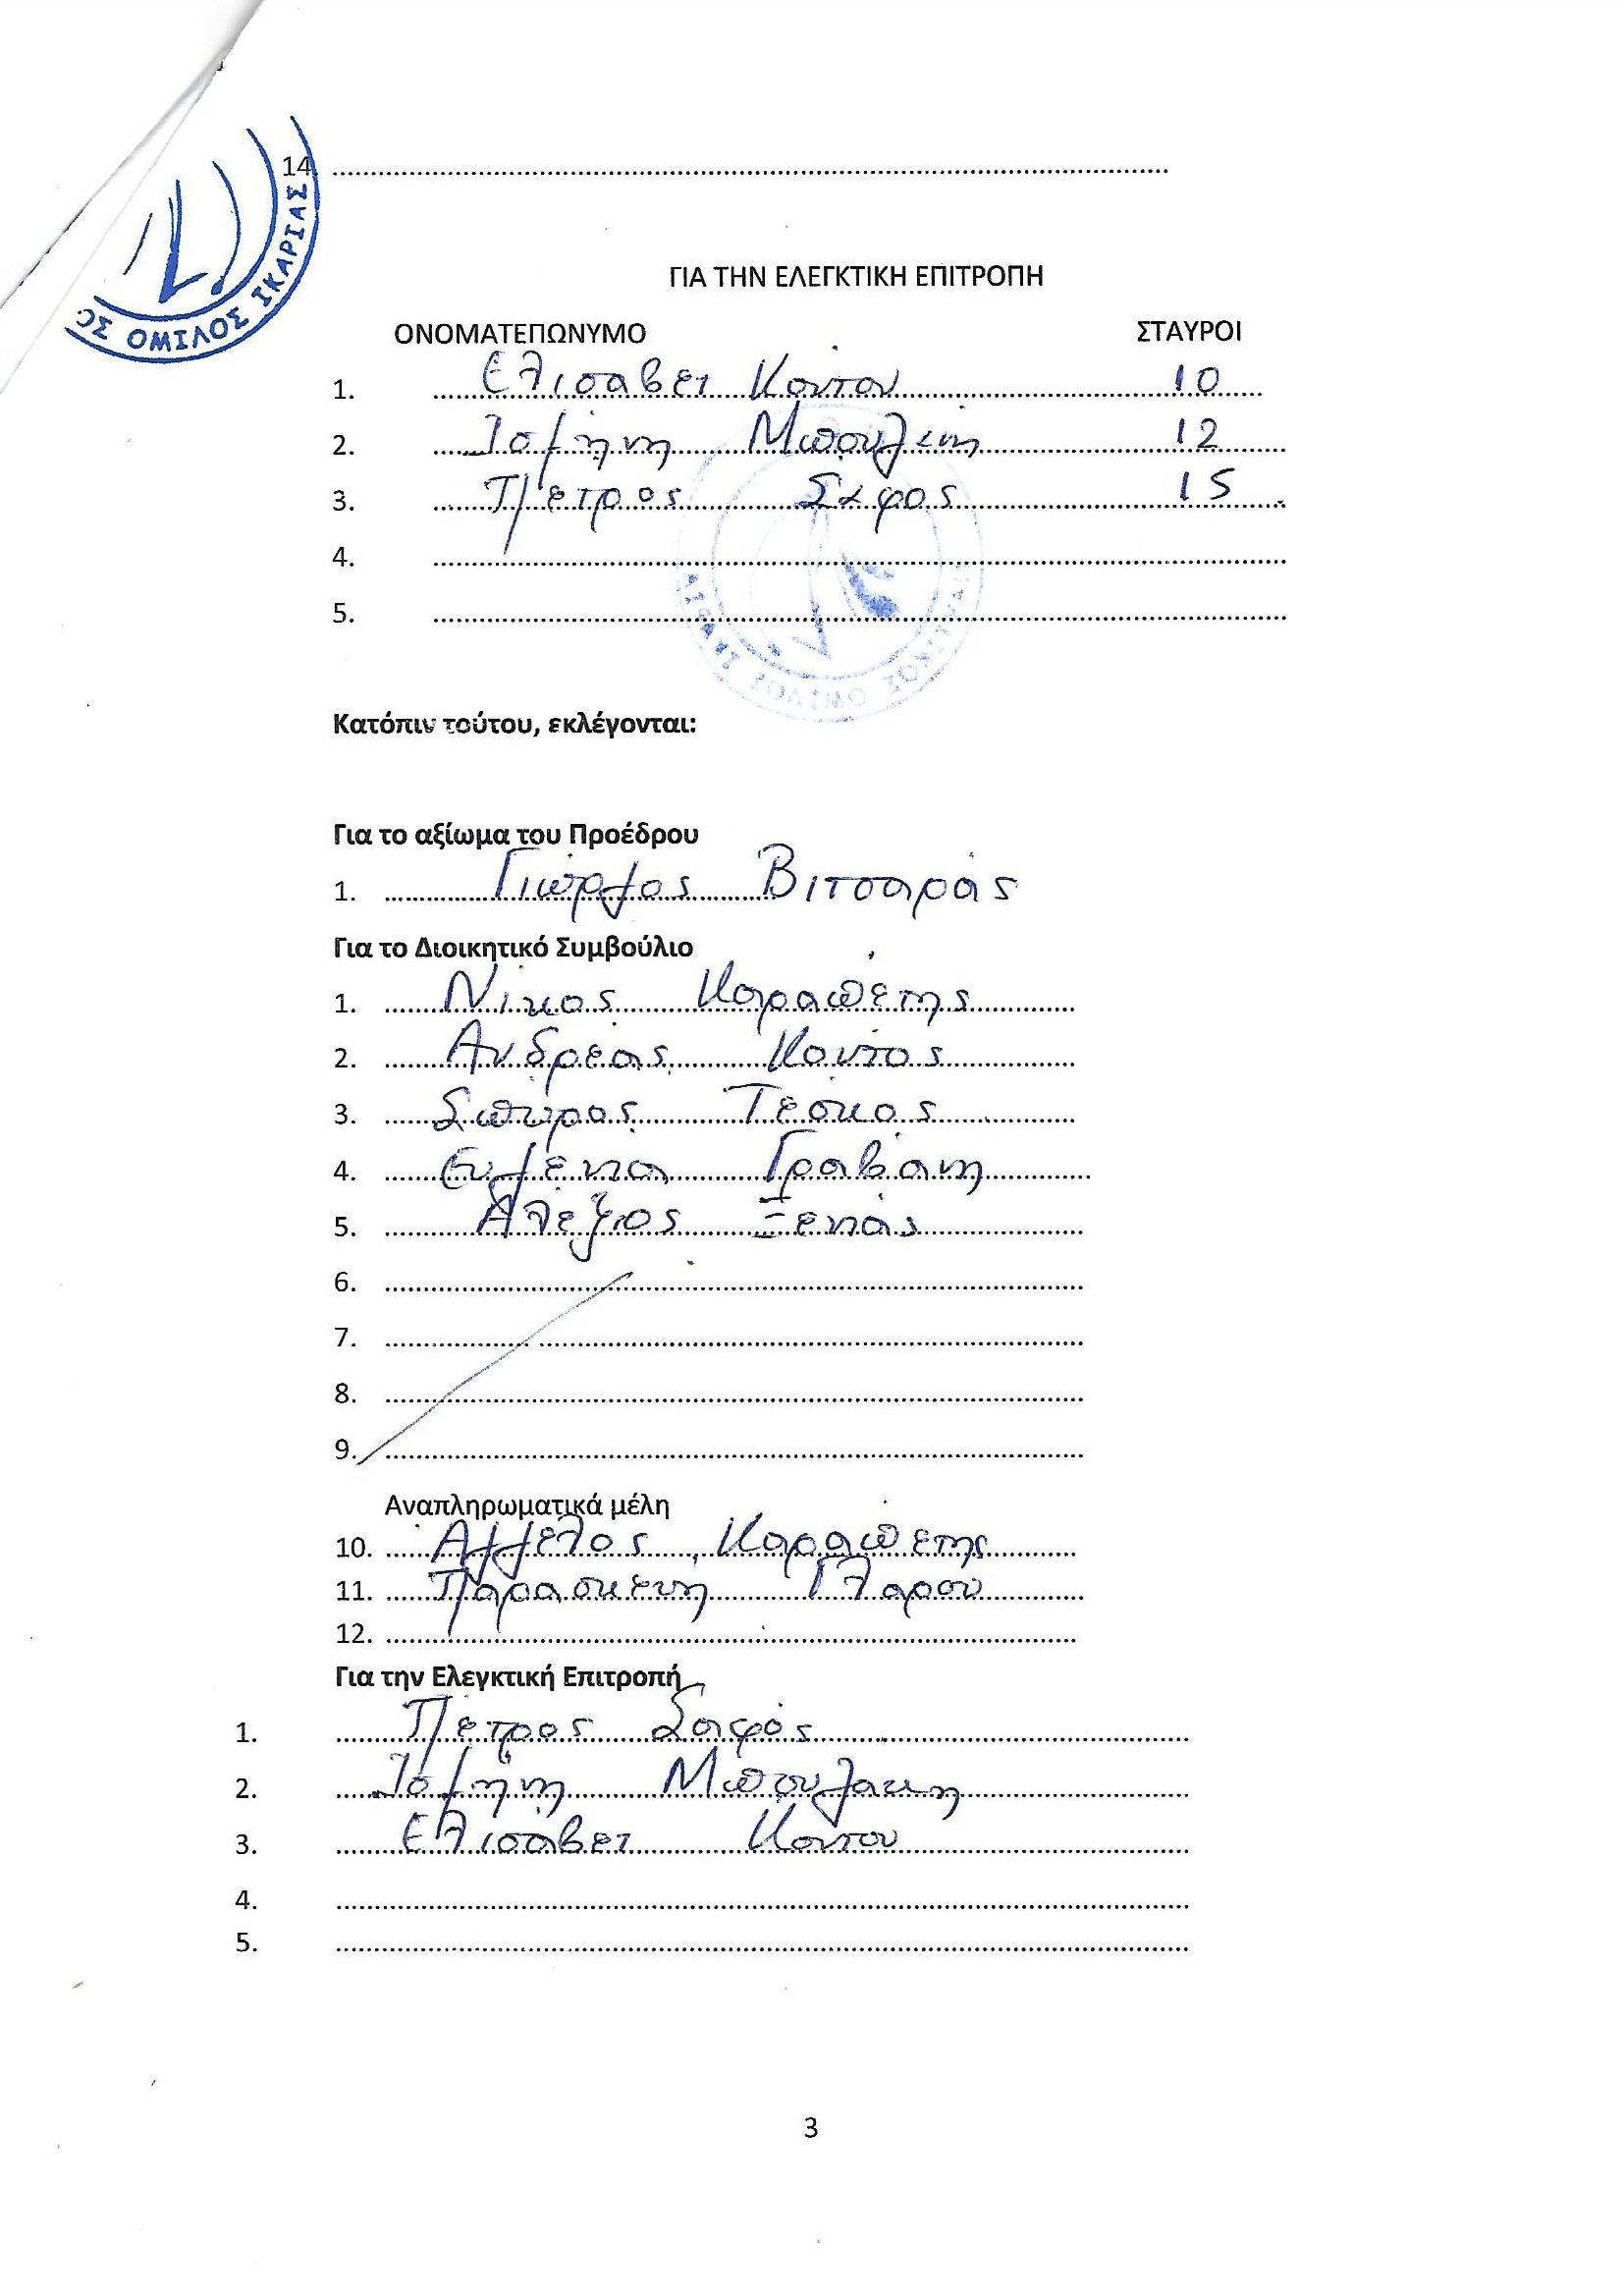 14. ....................
ΟΣ ΟΜΙΛΟΣ ΙΚΑΡΙΑΣ
ΓΙΑ ΤΗΝ ΕΛΕΓΚΤΙΚΗ ΕΠΙΤΡΟΠΗ
ΟΝΟΜΑΤΕΠΩΝΥΜΟ ΣΤΑΥΡΟΙ
1. Ελισαβετ Κόντου 10
2. Ισμήνη Μπουλάκη 12
3. Πετρος Σάφος 15
4.
5.
ΙΚΟΣ ΟΜΙΛΟΣ ΙΚΑΡΙΑΣ
Κατόπιν τούτου, εκλέγονται:
Για το αξίωμα του Προέδρου
1. Γιώργος Βιτσαράς
Για το Διοικητικό Συμβούλιο
1. Νίκος Καραπέτης
2. Ανδρέας Κόντος
3. Σπύρος Τέσκος
4. Ευγένια Γραβάνη
5. Αλέξιος Ξενάς
6.
7.
8.
9.
Αναπληρωματικά μέλη
10. Αγγελος Καραπετης
11. Παρασκευη Γλαρου
12.
Για την Ελεγκτική Επιτροπή
1. Πετρος Σαφός
2. Ισμήνη Μπουλακη
3. Ελισάβετ Κοντου
4.
5.
3